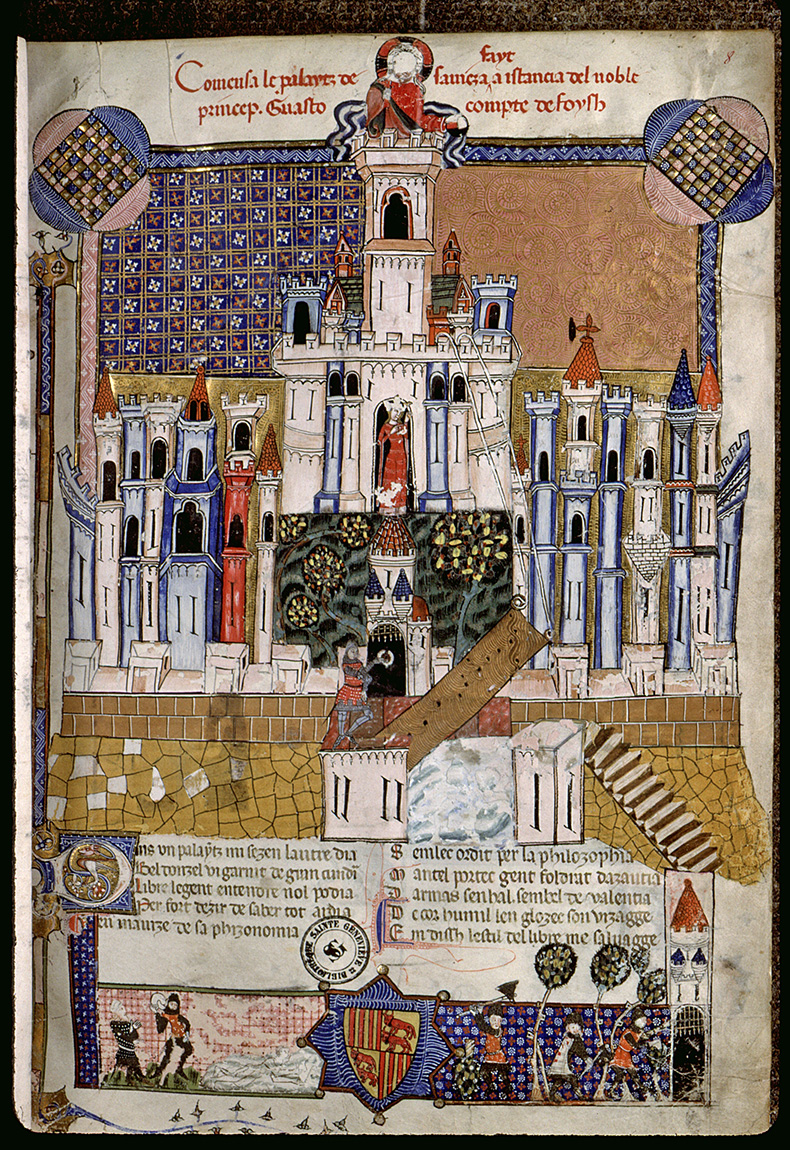 fayt
Comensa le palaytz de savieza, a istancia del noble
princep. Guasto compte de foysh
8
ins un palaytz mi sezen lautre dia
Bel donzel vi garnit de
Libre legent entendre nol podia
Per fort dezir de saber tot ardia
en mavize de sa phizonomia
Semlec ordit per la philozophia
Mantel portec gent foldrat dazautia
Darmas senhal sembel de valentia
De cor humil len glozec son vizagge
E in dissh lestil del libre me salvagge
BIBLIOTHEQUE SAINTE GENEVIEVE
SG